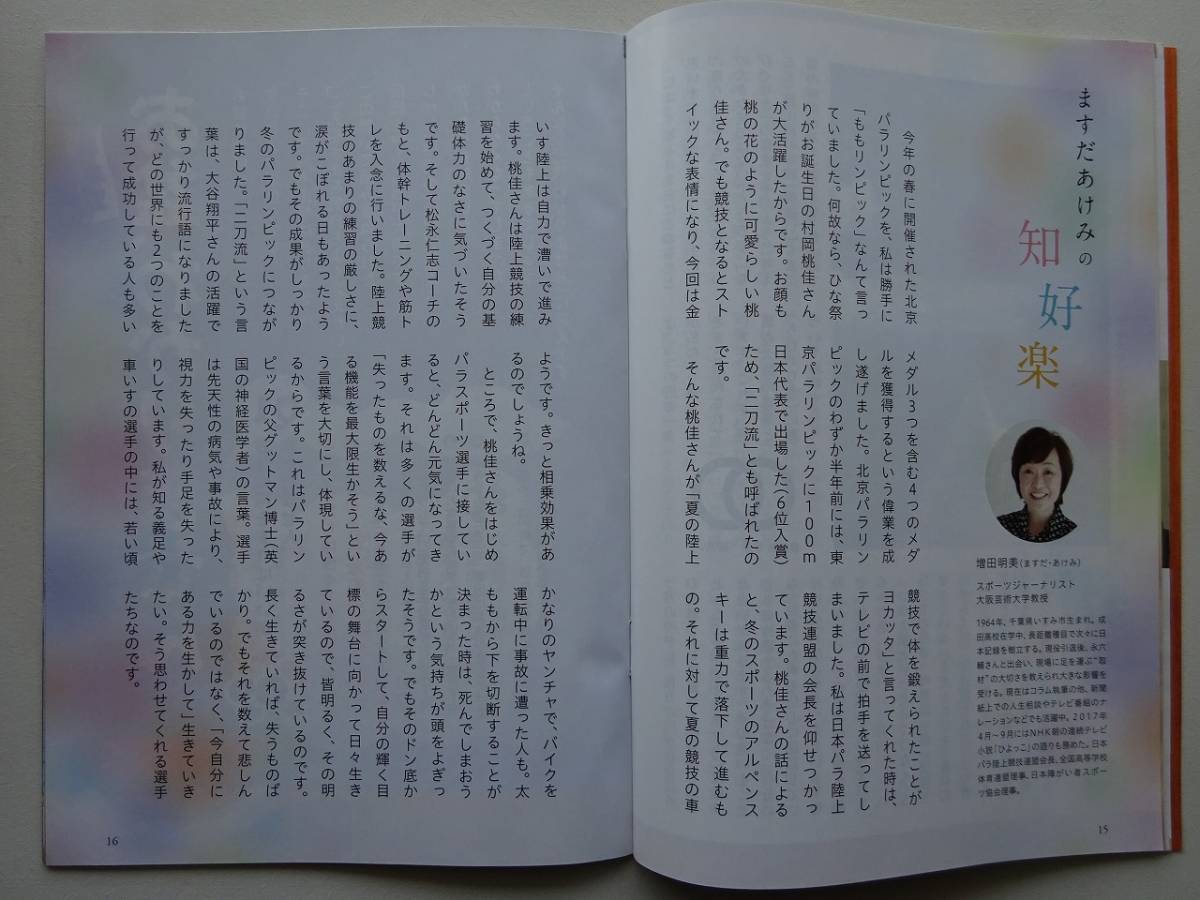 ますだあけみの
知好楽
増田明美(ますだ・あけみ)
スポーツジャーナリスト
大阪芸術大学教授
1964年、千葉県いすみ市生まれ。成
田高校在学中、長距離種目で次々に日
本記録を樹立する。現役引退後、永六
輔さんと出会い、現場に足を運ぶ“取
材”の大切さを教えられ大きな影響を
受ける。現在はコラム執筆の他、新聞
紙上での人生相談やテレビ番組のナ
レーションなどでも活躍中。2017年
4月〜9月にはNHK朝の連続テレビ
小説「ひよっこ」の語りも務めた。日本
パラ陸上競技連盟会長、全国高等学校
体育連盟理事、日本障がい者スポー
ツ協会理事。
今年の春に開催された北京
パラリンピックを、私は勝手に
「ももリンピック」なんて言っ
ていました。何故なら、ひな祭
りがお誕生日の村岡桃佳さん
が大活躍したからです。お顔も
桃の花のように可愛らしい桃
佳さん。でも競技となるとスト
イックな表情になり、今回は金
メダル3つを含む4つのメダ
ルを獲得するという偉業を成
し遂げました。北京パラリン
ピックのわずか半年前には、東
京パラリンピックに100m
日本代表で出場した(6位入賞)
ため、「二刀流」とも呼ばれたの
です。
そんな桃佳さんが「夏の陸上
競技で体を鍛えられたことが
ヨカッタ」と言ってくれた時は、
テレビの前で拍手を送ってし
まいました。私は日本パラ陸上
競技連盟の会長を仰せつかっ
ています。桃佳さんの話による
と、冬のスポーツのアルペンス
キーは重力で落下して進むも
の。それに対して夏の競技の車
15
いす陸上は自力で漕いで進み
ます。桃佳さんは陸上競技の練
習を始めて、つくづく自分の基
礎体力のなさに気づいたそう
です。そして松永仁志コーチの
もと、体幹トレーニングや筋ト
レを入念に行いました。陸上競
技のあまりの練習の厳しさに、
涙がこぼれる日もあったよう
です。でもその成果がしっかり
冬のパラリンピックにつなが
りました。「二刀流」という言
葉は、大谷翔平さんの活躍で
すっかり流行語になりました
が、どの世界にも2つのことを
行って成功している人も多い
ようです。きっと相乗効果があ
るのでしょうね。
ところで、桃佳さんをはじめ
パラスポーツ選手に接してい
ると、どんどん元気になってき
ます。それは多くの選手が
「失ったものを数えるな、今あ
る機能を最大限生かそう」とい
う言葉を大切にし、体現してい
るからです。これはパラリン
ピックの父グットマン博士(英
国の神経医学者)の言葉。選手
は先天性の病気や事故により、
視力を失ったり手足を失った
りしています。私が知る義足や
車いすの選手の中には、若い頃
かなりのヤンチャで、バイクを
運転中に事故に遭った人も。太
ももから下を切断することが
決まった時は、死んでしまおう
かという気持ちが頭をよぎっ
たそうです。でもそのドン底か
らスタートして、自分の輝く目
標の舞台に向かって日々生き
ているので、皆明るく、その明
るさが突き抜けているのです。
長く生きていれば、失うものば
かり。でもそれを数えて悲しん
でいるのではなく、「今自分に
ある力を生かして」生きていき
たい。そう思わせてくれる選手
たちなのです。
16